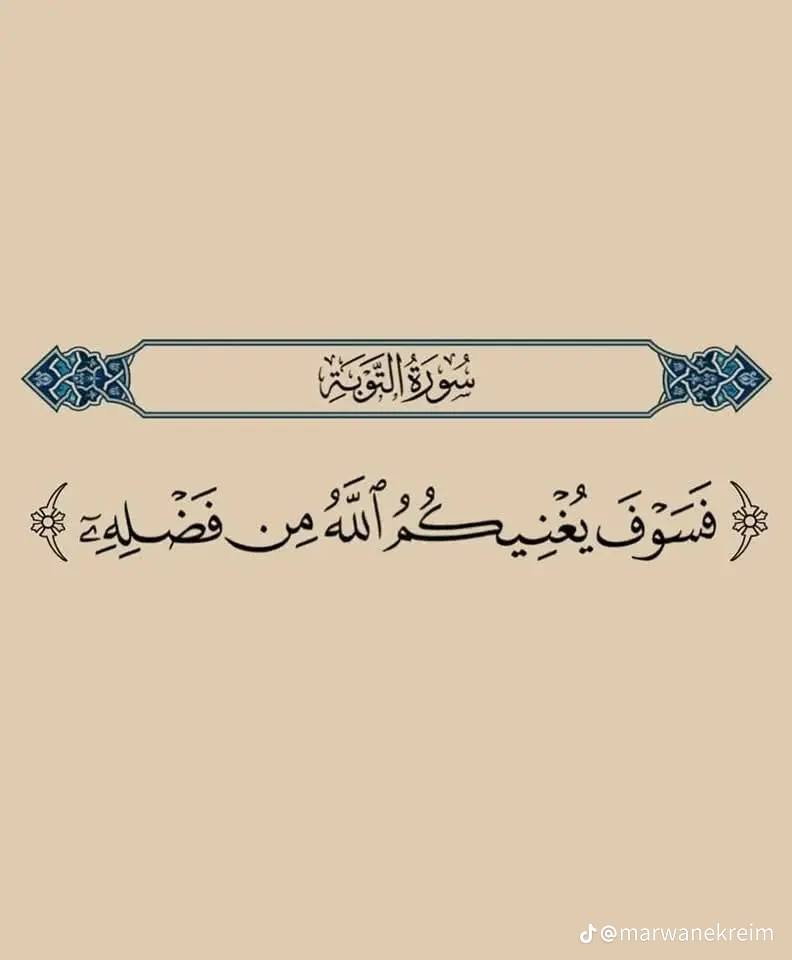 سُورَةُ التَّوْبَةِ
﴿فَسَوْفَ يُغْنِيكُمُ ٱللَّهُ مِن فَضْلِهِۦٓ﴾
@marwanekreim